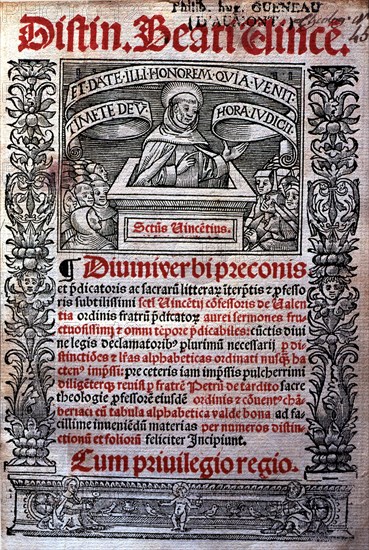 Philib. hug. GUENEAU
(D'AUMONT.)
Distin. Beati Uince.
ET·DATE·ILLI·HONOREM·QVIA·VENIT
TIMETE DEV̄
HORA·IVDICII
Sctūs Uincētius.
¶ Diuini verbi preconis
et p̄dicatoris ac sacrarū litterarꝝ īterp̄tis ⁊ p̄fesso
ris subtilissimi scti Uincētij cōfessoris de Ualen
tia ordinis fratrū p̄dicatorꝝ aurei sermones fru
ctuosissimi ⁊ omni tēpore p̄dicabiles: cūctis diui
ne legis declamatoribꝰ plurimū necessarij ꝑ di
stinctiōes ⁊ lr̄as alphabeticas ordinati nusꝗ̄ ha
ctenꝰ imp̄ssi: pre ceteris iam imp̄ssis pulcherrimi
diligēterqꝫ reuisi ꝑ fratrē Petrū de tardito sacre
theologie ꝓfessorē eiusdē ordinis ⁊ cōuentꝰ chā-
beriaci cū tabula alphabetica valde bona ad fa-
cillime inueniēdū materias per numeros distin-
ctionū et foliorū feliciter Incipiunt.
Cum priuilegio regio.